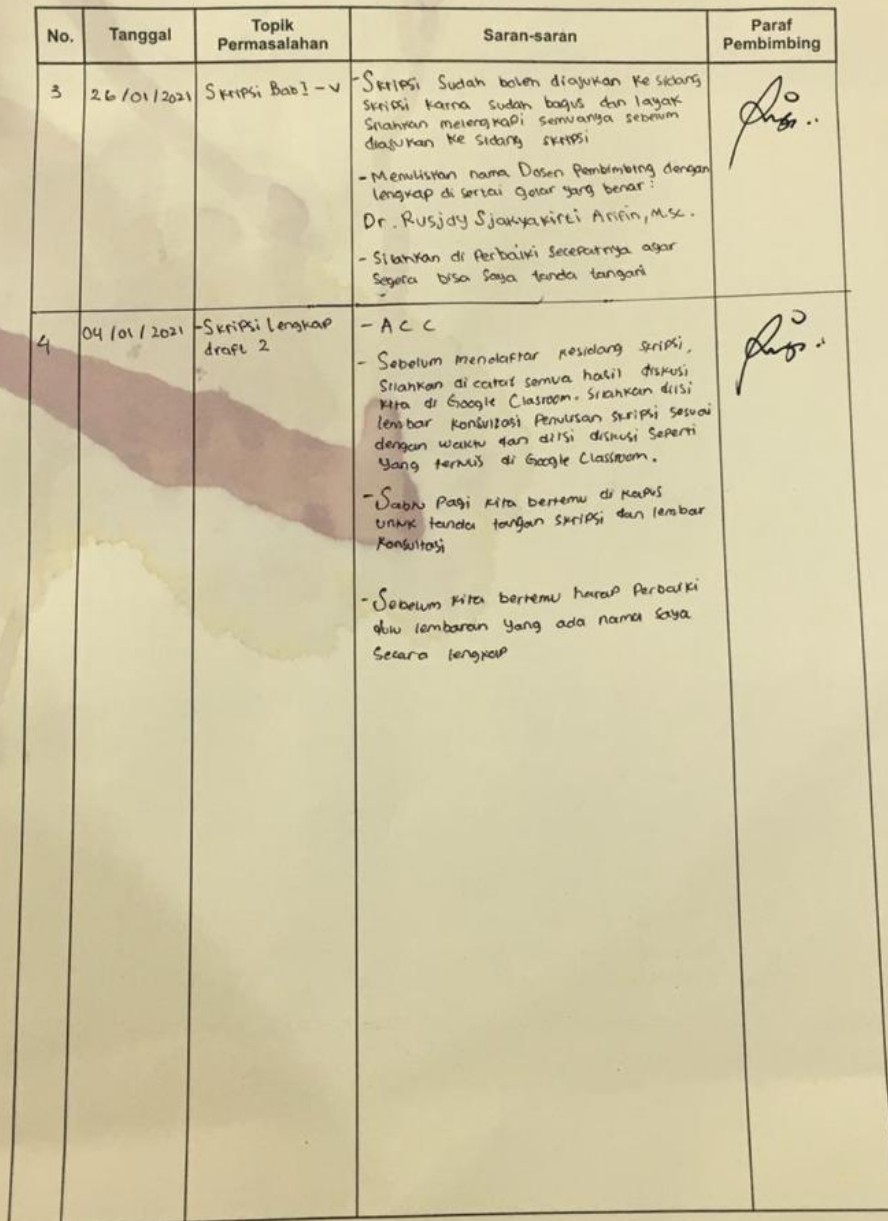 No. Tanggal Topik Permasalahan Saran-saran Paraf Pembimbing
3 26/01/2021 Skripsi Bab I - V
- Skripsi Sudah boleh diajukan ke sidang
skripsi karna sudah bagus dan layak
Silahkan melengkapi semuanya sebelum
diajukan ke sidang skripsi
- Menuliskan nama Dosen Pembimbing dengan
lengkap di sertai gelar yang benar :
Dr. Rusjdy Sjakyakirti Arifin, M.Sc.
- Silahkan di Perbaiki secepatnya agar
Segera bisa Saya tanda tangani
4 04/01/2021 - Skripsi lengkap
draft 2
- ACC
- Sebelum mendaftar kesidang skripsi,
Silahkan di catat semua hasil diskusi
kita di Google Clasroom. Silahkan diisi
lembar konsultasi Penulisan skripsi sesuai
dengan waktu dan diisi diskusi Seperti
Yang tertulis di Google Classroom.
- Sabtu Pagi kita bertemu di kapus
untuk tanda tangan skripsi dan lembar
Konsultasi
- Sebelum kita bertemu harap Perbaiki
dulu lembaran yang ada nama saya
Secara lengkap